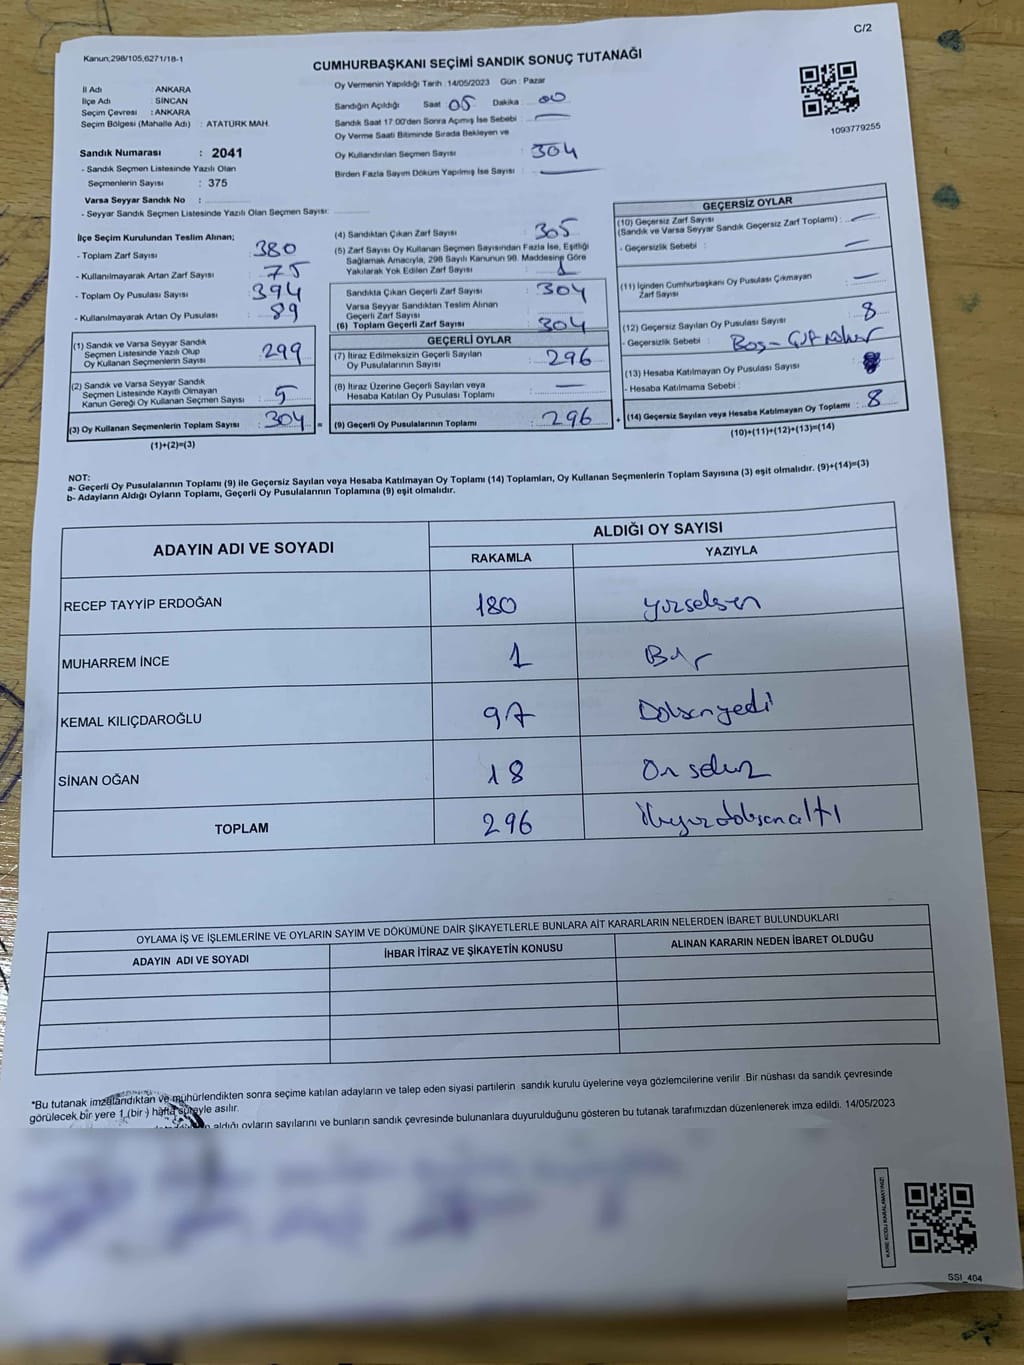 C/2
Kanun;298/105,6271/18-1
CUMHURBAŞKANI SEÇİMİ SANDIK SONUÇ TUTANAĞI
İl Adı : ANKARA
İlçe Adı : SİNCAN
Seçim Çevresi : ANKARA
Seçim Bölgesi (Mahalle Adı) : ATATÜRK MAH.
Oy Vermenin Yapıldığı Tarih : 14/05/2023 Gün : Pazar
Sandığın Açıldığı Saat : 05 Dakika : 00
Sandık Saat 17:00'den Sonra Açımış İse Sebebi :
Oy Verme Saati Bitiminde Sırada Bekleyen ve
Oy Kullandırılan Seçmen Sayısı : 304
Birden Fazla Sayım Döküm Yapılmış İse Sayısı :
1093779255
Sandık Numarası : 2041
- Sandık Seçmen Listesinde Yazılı Olan
Seçmenlerin Sayısı : 375
Varsa Seyyar Sandık No :
- Seyyar Sandık Seçmen Listesinde Yazılı Olan Seçmen Sayısı:
İlçe Seçim Kurulundan Teslim Alınan;
- Toplam Zarf Sayısı : 380
- Kullanılmayarak Artan Zarf Sayısı : 75
- Toplam Oy Pusulası Sayısı : 394
- Kullanılmayarak Artan Oy Pusulası : 89
(1) Sandık ve Varsa Seyyar Sandık
Seçmen Listesinde Yazılı Olup
Oy Kullanan Seçmenlerin Sayısı : 299
(2) Sandık ve Varsa Seyyar Sandık
Seçmen Listesinde Kayıtlı Olmayan
Kanun Gereği Oy Kullanan Seçmen Sayısı : 5
(3) Oy Kullanan Seçmenlerin Toplam Sayısı : 304
(1)+(2)=(3)
(4) Sandıktan Çıkan Zarf Sayısı : 305
(5) Zarf Sayısı Oy Kullanan Seçmen Sayısından Fazla İse, Eşitliği
Sağlamak Amacıyla, 298 Sayılı Kanunun 98. Maddesine Göre
Yakılarak Yok Edilen Zarf Sayısı : 1
Sandıkta Çıkan Geçerli Zarf Sayısı : 304
Varsa Seyyar Sandıktan Teslim Alınan
Geçerli Zarf Sayısı :
(6) Toplam Geçerli Zarf Sayısı : 304
GEÇERLİ OYLAR
(7) İtiraz Edilmeksizin Geçerli Sayılan
Oy Pusulalarının Sayısı : 296
(8) İtiraz Üzerine Geçerli Sayılan veya
Hesaba Katılan Oy Pusulası Toplamı :
= (9) Geçerli Oy Pusulalarının Toplamı : 296
GEÇERSİZ OYLAR
(10) Geçersiz Zarf Sayısı
(Sandık ve Varsa Seyyar Sandık Geçersiz Zarf Toplamı) :
- Geçersizlik Sebebi :
(11) İçinden Cumhurbaşkanı Oy Pusulası Çıkmayan
Zarf Sayısı :
(12) Geçersiz Sayılan Oy Pusulası Sayısı : 8
- Geçersizlik Sebebi : Boş-
(13) Hesaba Katılmayan Oy Pusulası Sayısı :
- Hesaba Katılmama Sebebi :
+ (14) Geçersiz Sayılan veya Hesaba Katılmayan Oy Toplamı : 8
(10)+(11)+(12)+(13)=(14)
NOT:
a- Geçerli Oy Pusulalarının Toplamı (9) ile Geçersiz Sayılan veya Hesaba Katılmayan Oy Toplamı (14) Toplamları, Oy Kullanan Seçmenlerin Toplam Sayısına (3) eşit olmalıdır. (9)+(14)=(3)
b- Adayların Aldığı Oyların Toplamı, Geçerli Oy Pusulalarının Toplamına (9) eşit olmalıdır.
ADAYIN ADI VE SOYADI ALDIĞI OY SAYISI
RAKAMLA YAZIYLA
RECEP TAYYİP ERDOĞAN 180 yüzseksen
MUHARREM İNCE 1 Bir
KEMAL KILIÇDAROĞLU 97 Doksanyedi
SİNAN OĞAN 18 On sekiz
TOPLAM 296 İkiyüzdoksanaltı
OYLAMA İŞ VE İŞLEMLERİNE VE OYLARIN SAYIM VE DÖKÜMÜNE DAİR ŞİKAYETLERLE BUNLARA AİT KARARLARIN NELERDEN İBARET BULUNDUKLARI
ADAYIN ADI VE SOYADI İHBAR İTİRAZ VE ŞİKAYETİN KONUSU ALINAN KARARIN NEDEN İBARET OLDUĞU
*Bu tutanak imzalandıktan ve mühürlendikten sonra seçime katılan adayların ve talep eden siyasi partilerin sandık kurulu üyelerine veya gözlemcilerine verilir .Bir nüshası da sandık çevresinde
görülecek bir yere 1 (bir ) hafta süreyle asılır.
aldığı oyların sayılarını ve bunların sandık çevresinde bulunanlara duyurulduğunu gösteren bu tutanak tarafımızdan düzenlenerek imza edildi. 14/05/2023
KARE KODU KARALAMAYINIZ!
SSI_404